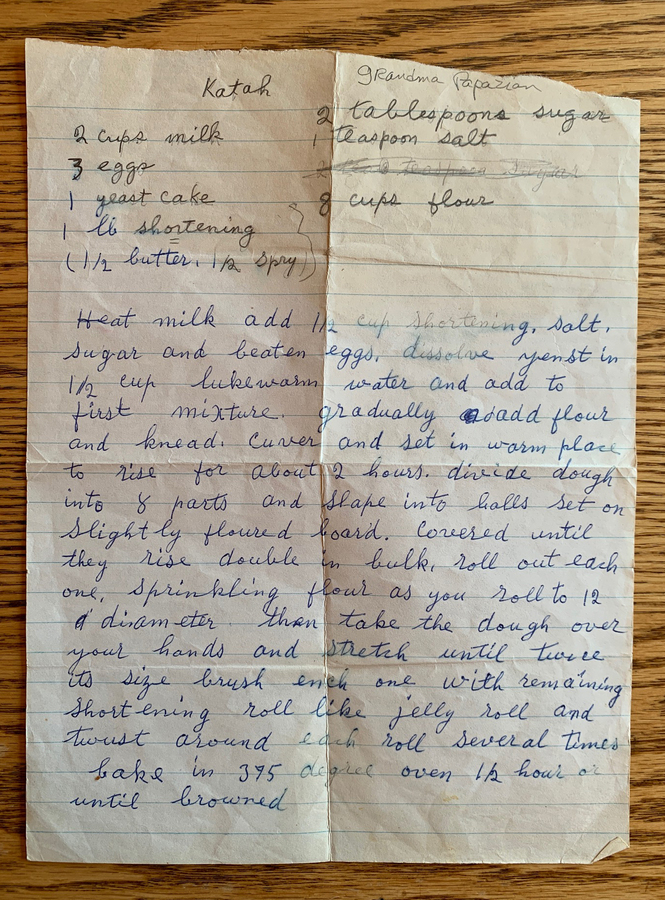 Katah
Grandma Papazian
2 cups milk
3 eggs
1 yeast cake
1 lb shortening
(1/2 butter, 1/2 spry)
2 tablespoons sugar
1 teaspoon salt
teaspoon sugar
8 cups flour
Heat milk add 1/2 cup shortening, salt,
sugar and beaten eggs. dissolve yeast in
1/2 cup lukewarm water and add to
first mixture. gradually add flour
and knead. Cuver and set in warm place
to rise for about 2 hours. divide dough
into 8 parts and shape into balls set on
slightly floured board. Covered until
they rise double in bulk, roll out each
one, sprinkling flour as you roll to 12
diameter. then take the dough over
your hands and stretch until twice
its size brush each one with remaining
shortening roll like jelly roll and
twust around each roll several times
bake in 375 degree oven 1/2 hour or
until browned